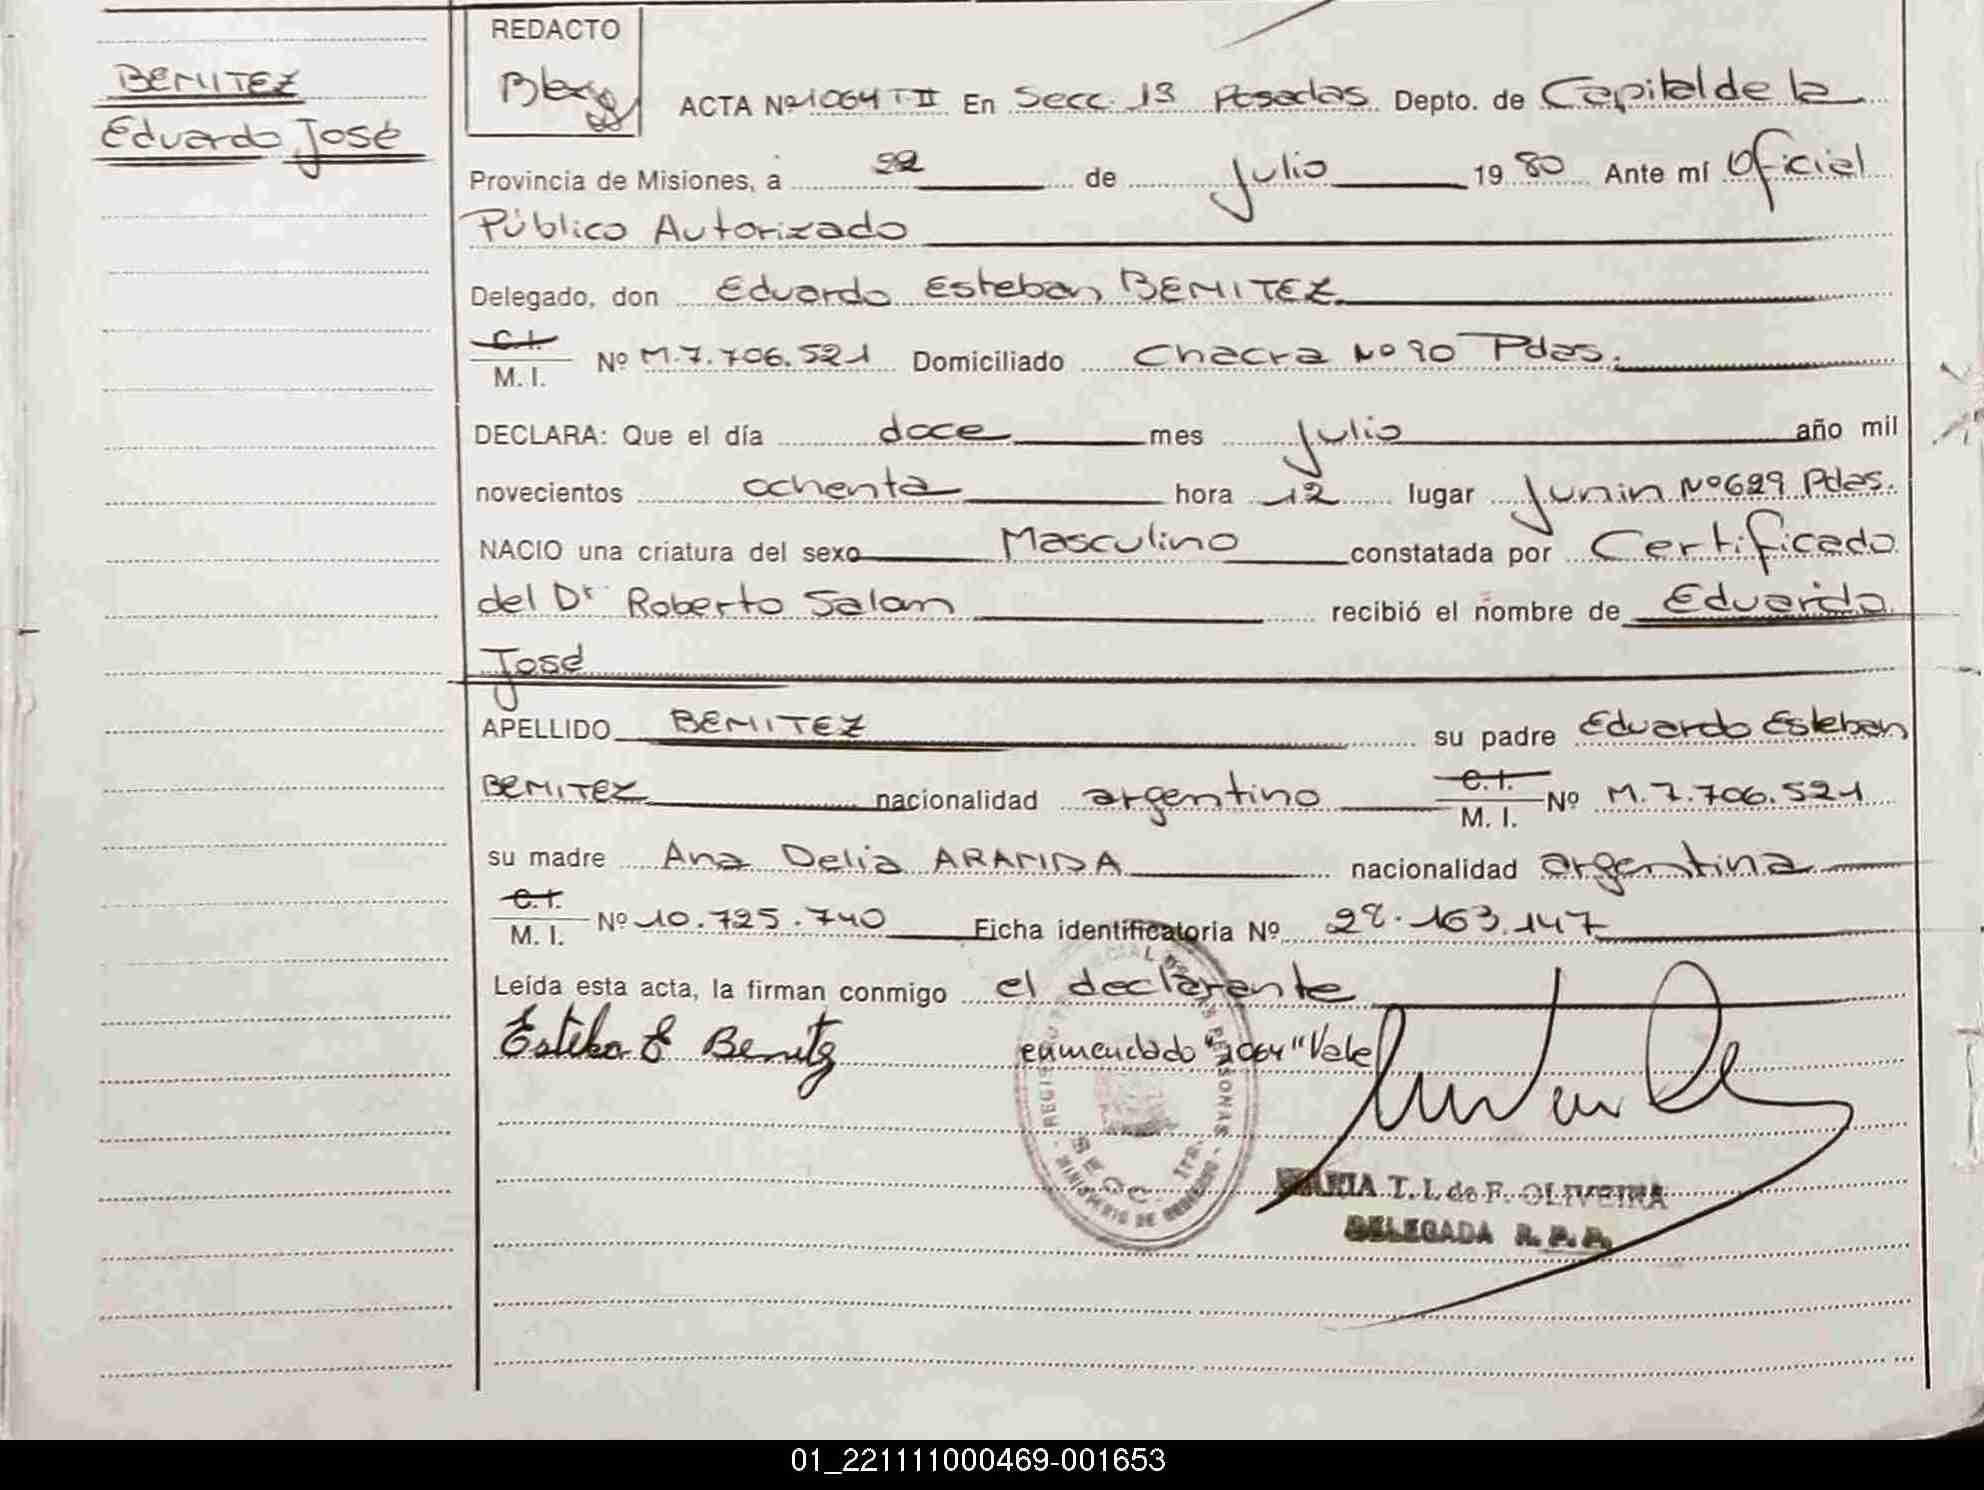 BENITEZ
Eduardo José
REDACTO
ACTA Nº 1064 T II En Secc. 1ª Posadas Depto. de Capital de la
Provincia de Misiones, a 22 de Julio 1980 Ante mí Oficial
Público Autorizado
Delegado, don Eduardo Esteban BENITEZ
C.I.
M. I. Nº M.7.706.521 Domiciliado Chacra Nº 90 Pdas.
DECLARA: Que el día doce mes Julio año mil
novecientos ochenta hora 12 lugar Junin Nº 629 Pdas.
NACIO una criatura del sexo Masculino constatada por Certificado
del Dr Roberto Salom recibió el nombre de Eduardo
José
APELLIDO BENITEZ su padre Eduardo Esteban
BENITEZ nacionalidad argentino C.I. M. I. Nº M.7.706.521
su madre Ana Delia ARANDA nacionalidad argentina
C.I.
M. I. Nº 10.725.740 Ficha identificatoria Nº 28.163.147
Leída esta acta, la firman conmigo el declarante
Esteban E Benitez enmendado "1064" Vale
MARIA T. I. de F. OLIVEIRA
DELEGADA R. P. P.
REGISTRO PROVINCIAL DE LAS PERSONAS - MINISTERIO DE GOBIERNO -
SECC. 1ra.
01_221111000469-001653